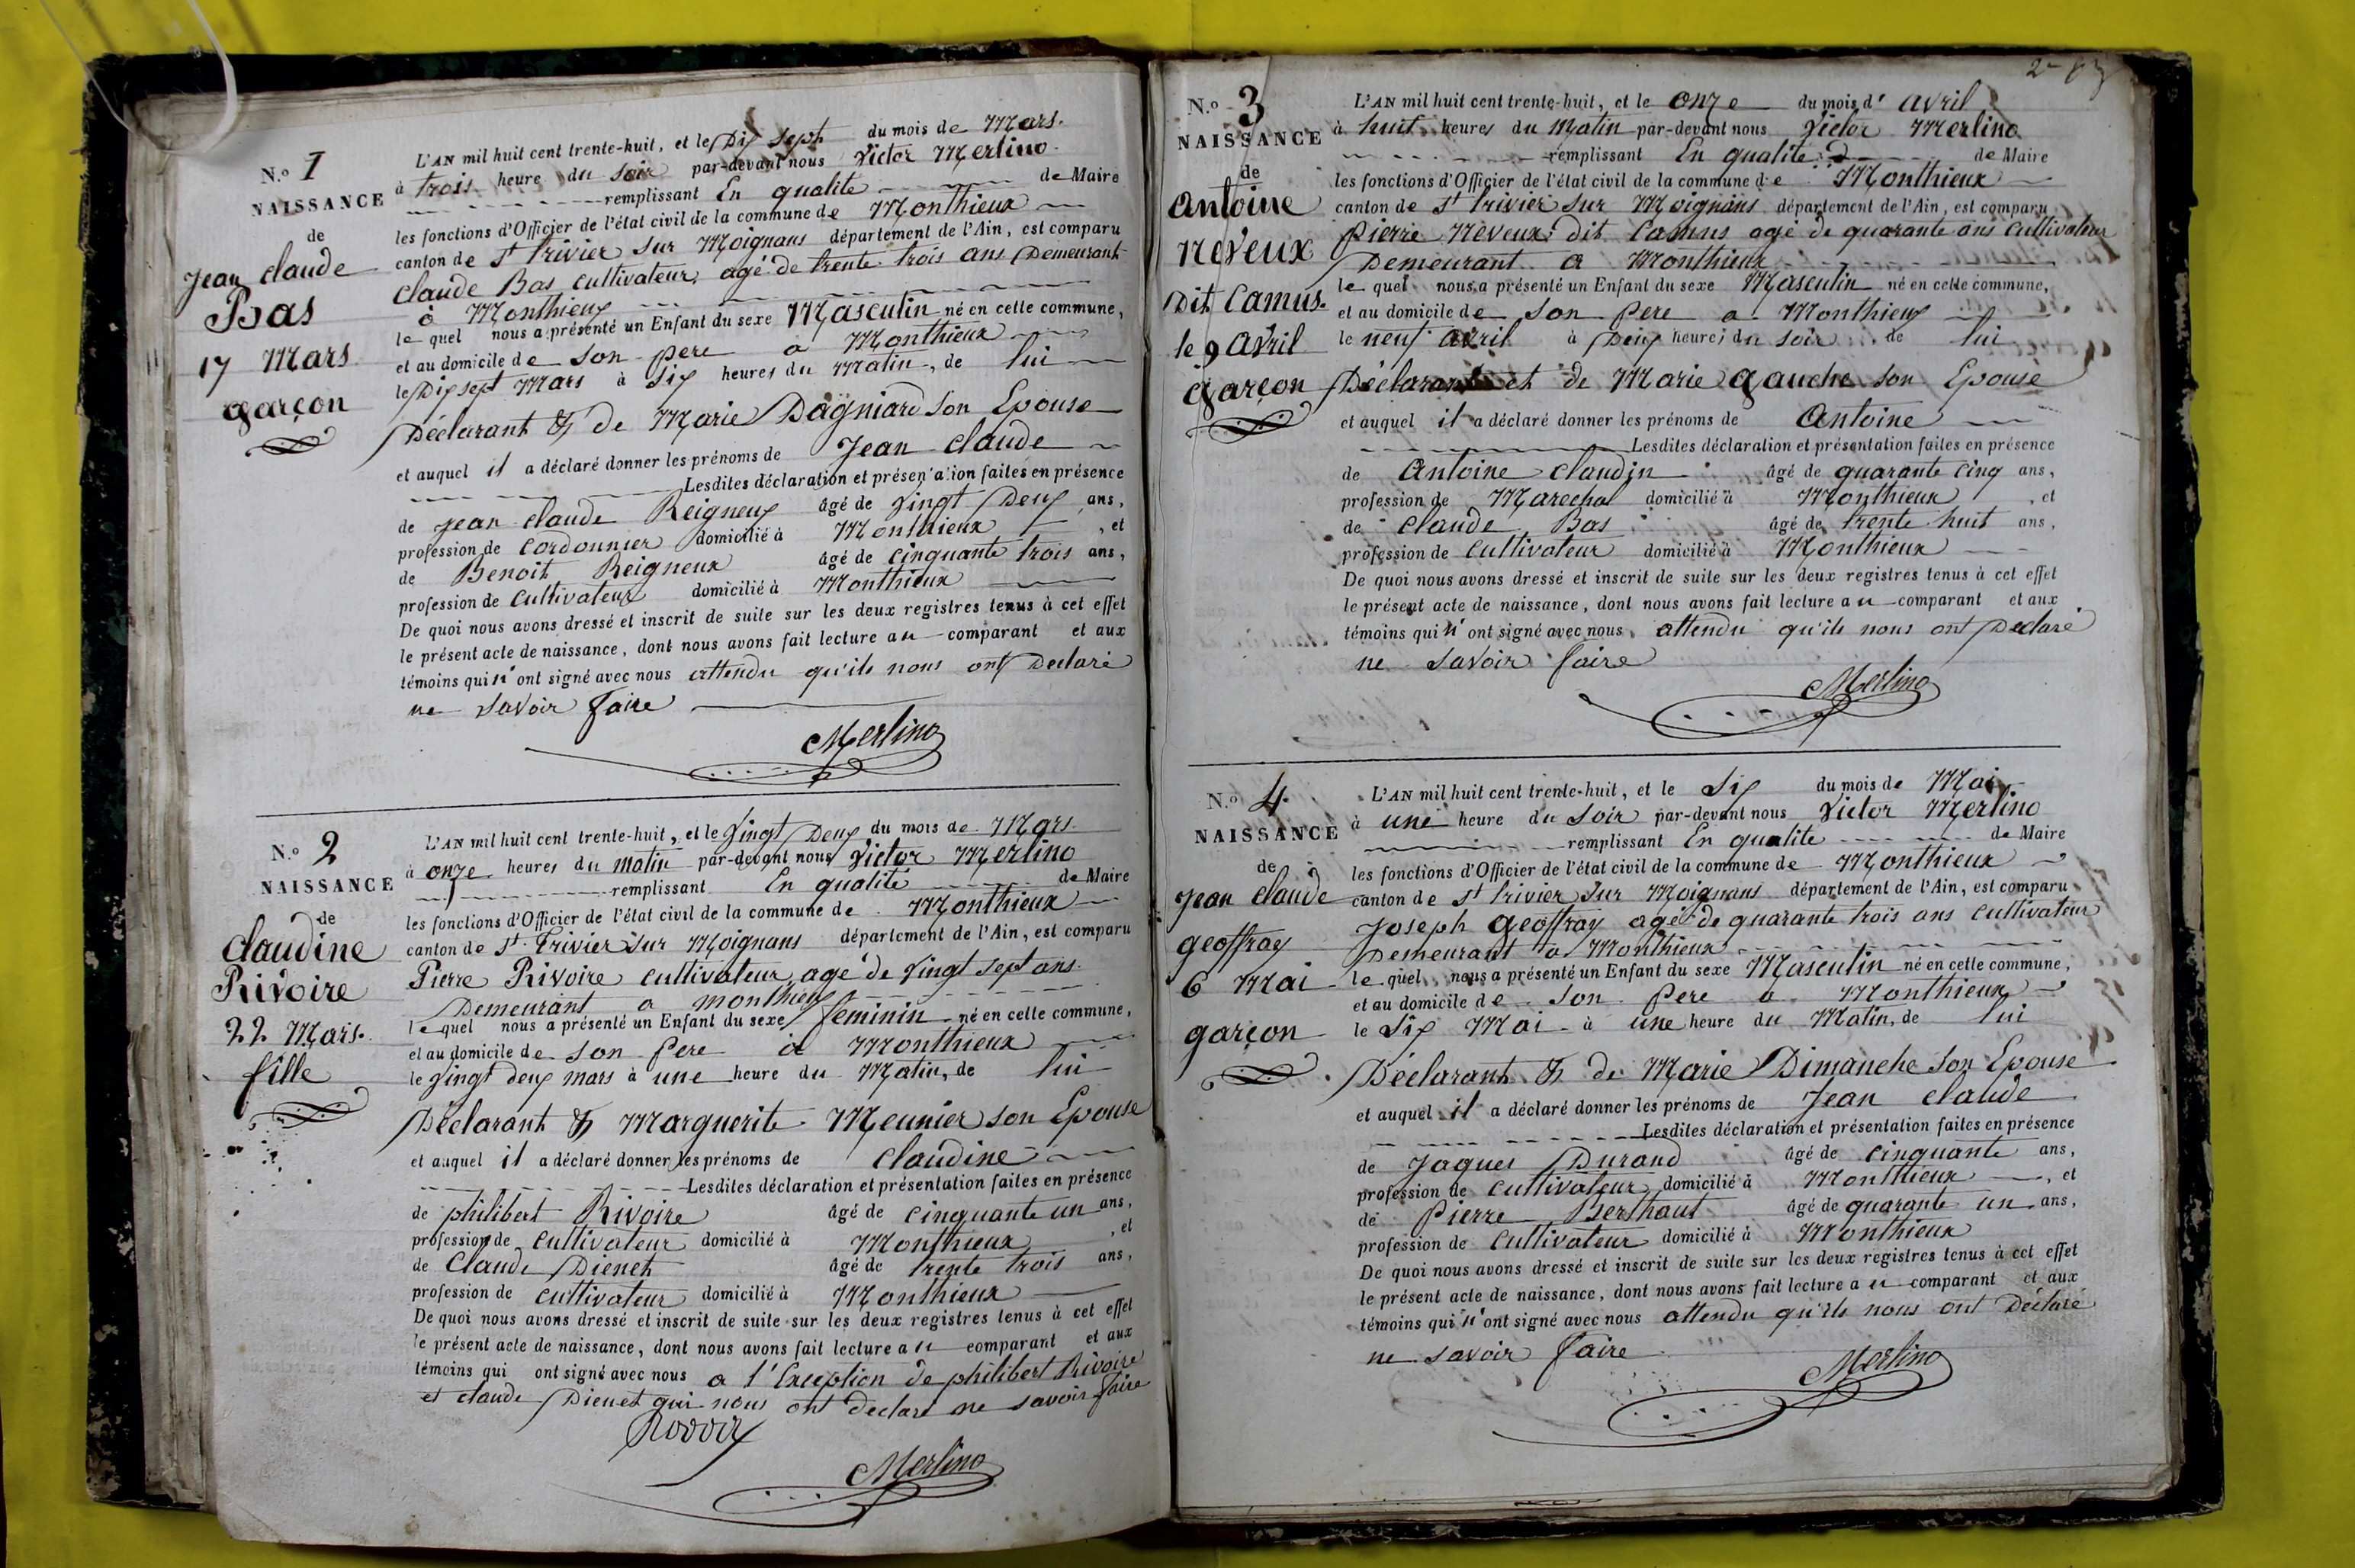 N.o 1
NAISSANCE
de
Jean Claude
Bas
17 Mars
garçon
L'AN mil huit cent trente-huit, et le Dix Sept du mois de Mars.
à trois heure du Soir par-devant nous Victor Merlino
remplissant En qualité de Maire
les fonctions d'Officier de l'état civil de la commune de Monthieux
canton de St Trivier Sur Moignans département de l'Ain, est comparu
Claude Bas cultivateur agé de trente trois ans Demeurant
à Monthieux
le quel nous a présenté un Enfant du sexe Masculin né en cette commune,
et au domicile de Son pere a Monthieux
le Dix sept Mars à Six heures du Matin, de lui
Déclarant & de Marie Dagniard son Epouse
et auquel il a déclaré donner les prénoms de Jean Claude
Lesdites déclaration et présentation faites en présence
de Jean Claude Reigneux âgé de Vingt Deux ans,
profession de Cordonnier domicilié à Monthieux, et
de Benoit Reigneux âgé de cinquante trois ans,
profession de Cultivateur domicilié à Monthieux
De quoi nous avons dressé et inscrit de suite sur les deux registres tenus à cet effet
le présent acte de naissance, dont nous avons fait lecture au comparant et aux
témoins qui n'ont signé avec nous attendu qu'ils nous ont Declaré
ne Savoir faire
Merlino
N.o 2
NAISSANCE
de
Claudine
Rivoire
22 Mars.
fille
L'AN mil huit cent trente-huit, et le Vingt Deux du mois de Mars.
à onze heures du matin par-devant nous Victor Merlino
remplissant En qualité de Maire
les fonctions d'Officier de l'état civil de la commune de Monthieux
canton de St. Trivier Sur Moignans département de l'Ain, est comparu
Pierre Rivoire cultivateur agé de Vingt Sept ans.
Demeurant a Monthieux
le quel nous a présenté un Enfant du sexe feminin né en cette commune,
et au domicile de Son Pere à Monthieux
le Vingt deux mars à une heure du Matin, de lui
Déclarant & Marguerite Meunier son Epouse
et auquel il a déclaré donner les prénoms de Claudine
Lesdites déclaration et présentation faites en présence
de philibert Rivoire âgé de cinquante un ans,
profession de cultivateur domicilié à Monthieux, et
de Claude Dienet âgé de trente trois ans,
profession de cultivateur domicilié à Monthieux
De quoi nous avons dressé et inscrit de suite sur les deux registres tenus à cet effet
le présent acte de naissance, dont nous avons fait lecture au comparant et aux
témoins qui ont signé avec nous a l'Exception de philibert Rivoire
et claude Dienet qui nous ont declaré ne savoir faire
Merlino
N.o 3
NAISSANCE
de
Antoine
Neveux
Dit Camus.
le 9 Avril
garçon
L'AN mil huit cent trente-huit, et le onze du mois d'avril
à huit heures du Matin par-devant nous Victor Merlino
remplissant En qualité de Maire
les fonctions d'Officier de l'état civil de la commune de Monthieux
canton de St Trivier Sur Moignans département de l'Ain, est comparu
Pierre Neveux dit Camus agé de quarante ans Cultivateur
Demeurant a Monthieux
le quel nous a présenté un Enfant du sexe Masculin né en cette commune,
et au domicile de Son Pere a Monthieux
le neuf avril à Deux heures du Soir de lui
Déclarant et de Marie gauche son Epouse
et auquel il a déclaré donner les prénoms de Antoine
Lesdites déclaration et présentation faites en présence
de Antoine Claudin âgé de quarante cinq ans,
profession de Marechal domicilié à Monthieux, et
de Claude Bas âgé de trente huit ans,
profession de Cultivateur domicilié à Monthieux
De quoi nous avons dressé et inscrit de suite sur les deux registres tenus à cet effet
le présent acte de naissance, dont nous avons fait lecture au comparant et aux
témoins qui n'ont signé avec nous attendu qu'ils nous ont Declaré
ne Savoir faire
Merlino
N.o 4.
NAISSANCE
de
Jean Claude
geoffray
6 Mai
garçon
L'AN mil huit cent trente-huit, et le Six du mois de Mai
à une heure du Soir par-devant nous Victor Merlino
remplissant En qualité de Maire
les fonctions d'Officier de l'état civil de la commune de Monthieux
canton de St Trivier Sur Moignans département de l'Ain, est comparu
Joseph geoffray agé de quarante trois ans Cultivateur
Demeurant a Monthieux
le quel nous a présenté un Enfant du sexe Masculin né en cette commune,
et au domicile de Son Pere a Monthieux
le Six Mai à une heure du Matin, de lui
Déclarant & de Marie Dimanche son Epouse
et auquel il a déclaré donner les prénoms de Jean Claude
Lesdites déclaration et présentation faites en présence
de Jaques Durand âgé de cinquante ans,
profession de cultivateur domicilié à Monthieux, et
de Pierre Berthaut âgé de quarante un ans,
profession de Cultivateur domicilié à Monthieux
De quoi nous avons dressé et inscrit de suite sur les deux registres tenus à cet effet
le présent acte de naissance, dont nous avons fait lecture au comparant et aux
témoins qui n'ont signé avec nous attendu qu'ils nous ont Déclaré
ne savoir faire
Merlino